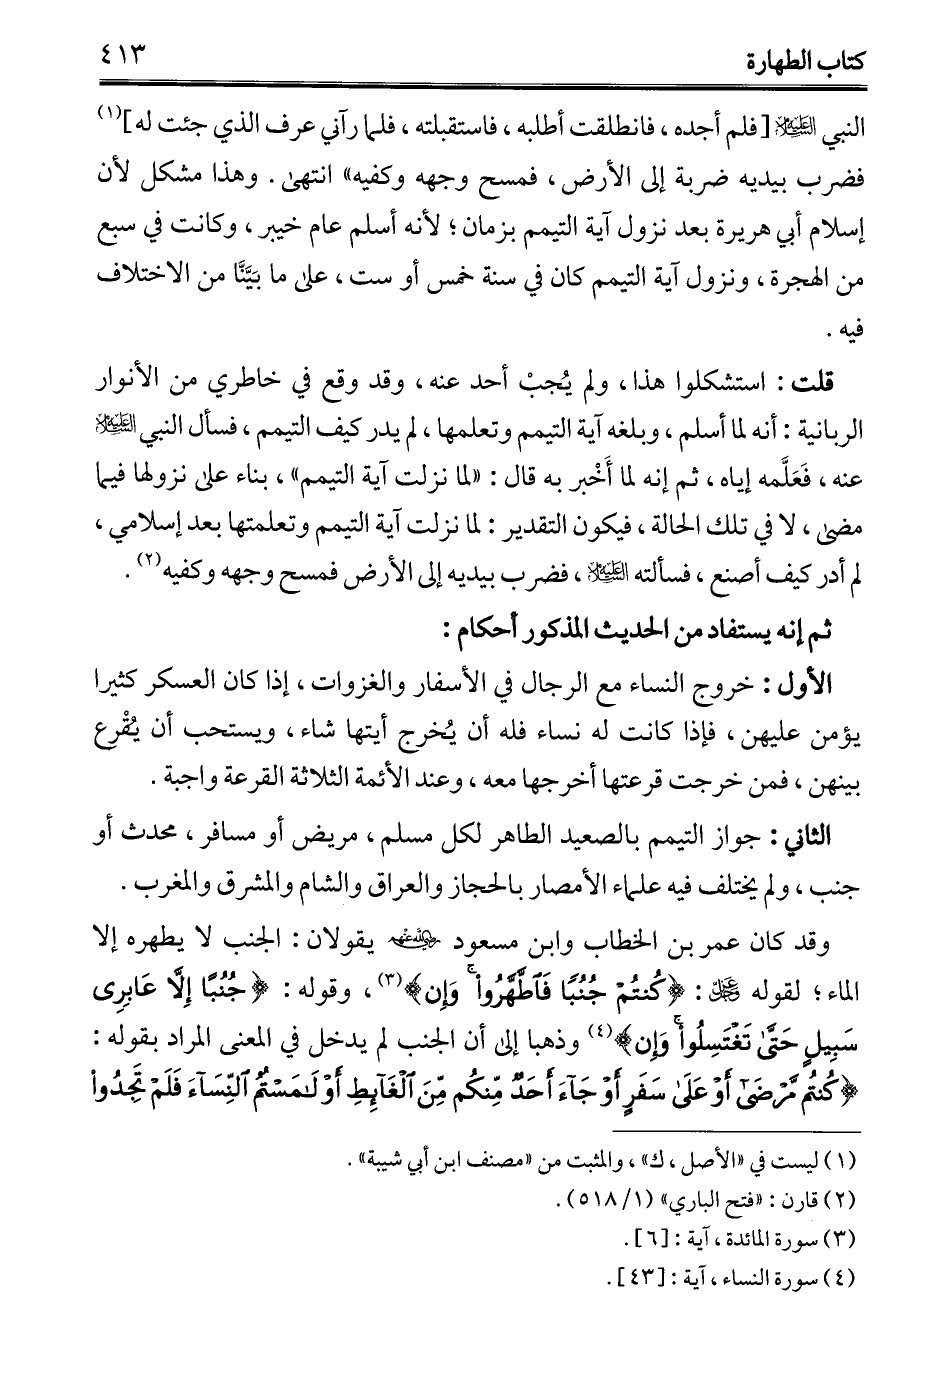 كتاب الطهارة
٤١٣
النبي عليه السلام [فلم أجده ، فانطلقت أطلبه ، فاستقبلته ، فلما رآني عرف الذي جئت له](١)
فضرب بيديه ضربة إلى الأرض ، فمسح وجهه وكفيه» انتهى . وهذا مشكل لأن
إسلام أبي هريرة بعد نزول آية التيمم بزمان ؛ لأنه أسلم عام خيبر ، وكانت في سبع
من الهجرة ، ونزول آية التيمم كان في سنة خمس أو ست ، على ما بَيَّنَّا من الاختلاف
فيه .
قلت : استشكلوا هذا ، ولم يُجِبْ أحد عنه ، وقد وقع في خاطري من الأنوار
الربانية : أنه لما أسلم ، وبلغه آية التيمم وتعلمها ، لم يدر كيف التيمم ، فسأل النبي عليه السلام
عنه ، فَعَلَّمه إياه ، ثم إنه لما أَخْبر به قال : «لما نزلت آية التيمم» ، بناء على نزولها فيما
مضى ، لا في تلك الحالة ، فيكون التقدير : لما نزلت آية التيمم وتعلمتها بعد إسلامي ،
لم أدر كيف أصنع ، فسألته عليه السلام ، فضرب بيديه إلى الأرض فمسح وجهه وكفيه(٢) .
ثم إنه يستفاد من الحديث المذكور أحكام :
الأول : خروج النساء مع الرجال في الأسفار والغزوات ، إذا كان العسكر كثيرا
يؤمن عليهن ، فإذا كانت له نساء فله أن يُخرج أيتها شاء ، ويستحب أن يُقْرِع
بينهن ، فمن خرجت قرعتها أخرجها معه ، وعند الأئمة الثلاثة القرعة واجبة .
الثاني : جواز التيمم بالصعيد الطاهر لكل مسلم ، مريض أو مسافر ، محدث أو
جنب ، ولم يختلف فيه علماء الأمصار بالحجاز والعراق والشام والمشرق والمغرب .
وقد كان عمر بن الخطاب وابن مسعود رضي الله عنهما يقولان : الجنب لا يطهره إلا
الماء ؛ لقوله عز وجل : ﴿كُنتُمْ جُنُبًا فَٱطَّهَّرُوا۟ ۚ وَإِن﴾(٣) ، وقوله : ﴿جُنُبًا إِلَّا عَابِرِى
سَبِيلٍ حَتَّىٰ تَغْتَسِلُوا۟ ۚ وَإِن﴾(٤) وذهبا إلى أن الجنب لم يدخل في المعنى المراد بقوله :
﴿كُنتُم مَّرْضَىٰٓ أَوْ عَلَىٰ سَفَرٍ أَوْ جَآءَ أَحَدٌ مِّنكُم مِّنَ ٱلْغَآئِطِ أَوْ لَـٰمَسْتُمُ ٱلنِّسَآءَ فَلَمْ تَجِدُوا۟
(١) ليست في «الأصل ، ك» ، والمثبت من «مصنف ابن أبي شيبة» .
(٢) قارن : «فتح الباري» (١/ ٥١٨) .
(٣) سورة المائدة ، آية : [٦] .
(٤) سورة النساء ، آية : [٤٣] .